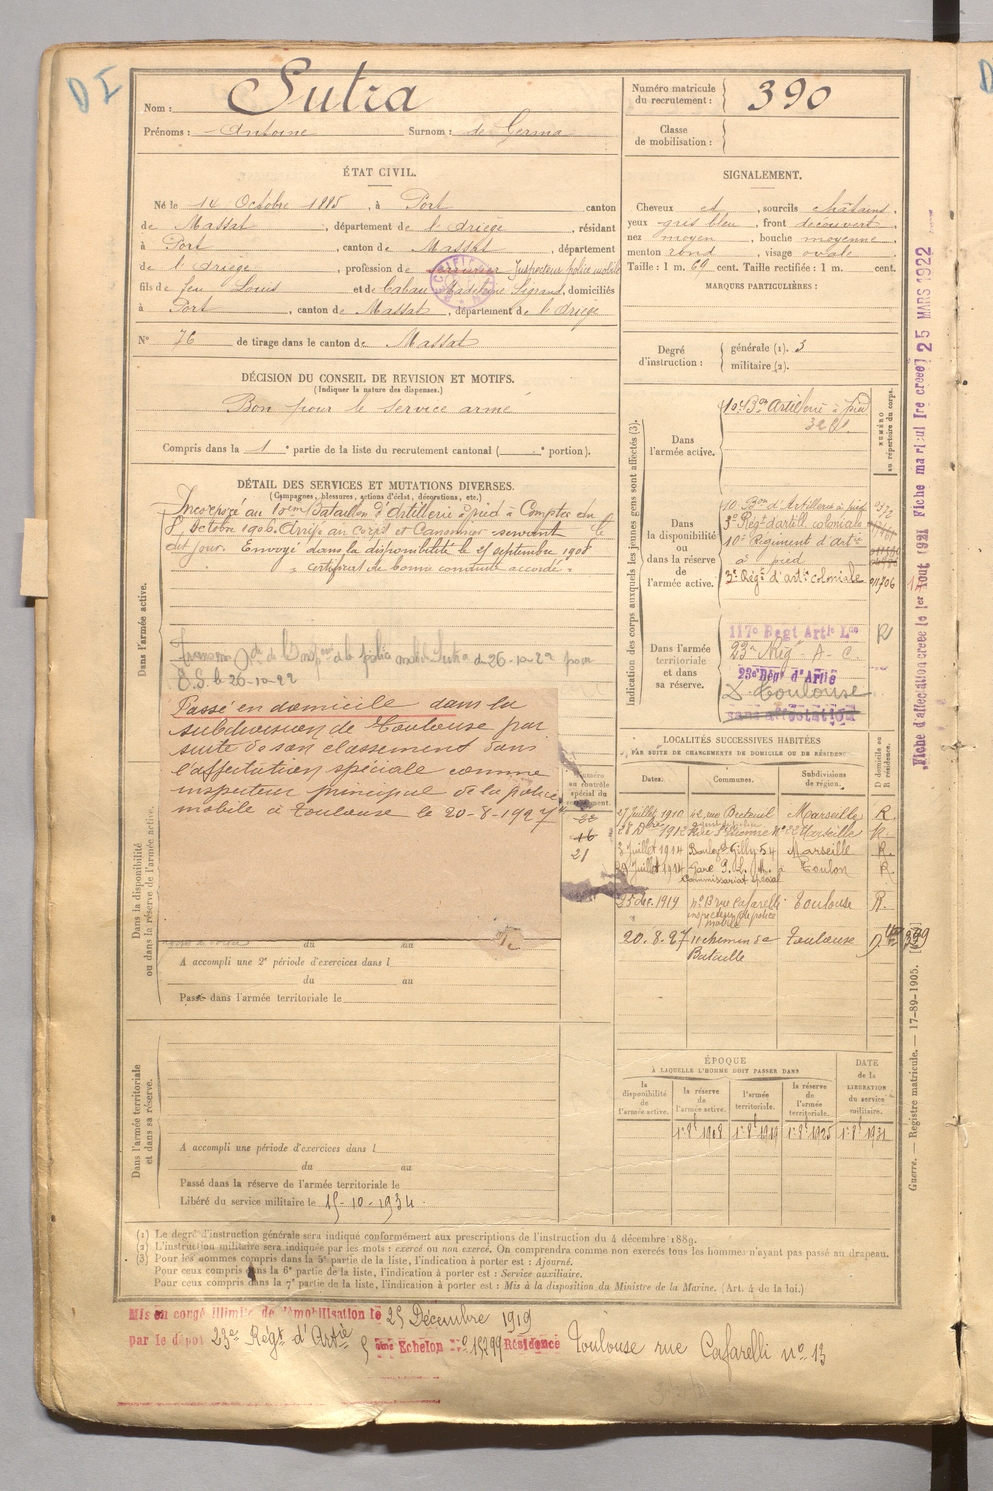 D I
Nom : Sutra
Prénoms : Antoine Surnom : de Germa
Numéro matricule du recrutement : 390
Classe de mobilisation :
ÉTAT CIVIL.
Né le 14 Octobre 1885, à Port canton
de Massat, département de l'Ariège, résidant
à Port, canton de Massat, département
de l'Ariège, profession de serrurier Inspecteur police mobile
fils de feu Louis et de Cabau Madeleine, domiciliés
à Port, canton de Massat, département de l'Ariège
N° 76 de tirage dans le canton de Massat
SIGNALEMENT.
Cheveux et, sourcils châtains,
yeux gris bleu, front découvert,
nez moyen, bouche moyenne,
menton rond, visage ovale.
Taille : 1 m. 69 cent. Taille rectifiée : 1 m. cent.
MARQUES PARTICULIÈRES :
Degré d'instruction : générale (1). 3
militaire (2).
DÉCISION DU CONSEIL DE REVISION ET MOTIFS.
(Indiquer la nature des dispenses.)
Bon pour le service armé
Compris dans la 1e partie de la liste du recrutement cantonal ( e portion).
DÉTAIL DES SERVICES ET MUTATIONS DIVERSES.
(Campagnes, blessures, actions d'éclat, décorations, etc.)
Dans l'armée active.
Incorporé au 10ème Bataillon d'Artillerie à pied à Compter du
8 Octobre 1906. Arrivé au corps et Canonnier servant le
dit jour. Envoyé dans la disponibilité le 25 septembre 1908
" certificat de bonne conduite accordé "
de la police mobile Sutra du 26-10-22
E.S. le 26-10-22
Passé en domicile dans la
subdivision de Toulouse par
suite de son classement dans
l'affectation spéciale comme
inspecteur principal de la police
mobile à Toulouse le 20-8-1927
Dans la disponibilité ou dans la réserve de l'armée active.
numéro au contrôle spécial du recrutement.
22
16
21
du au
A accompli une 2e période d'exercices dans l
du au
Passé dans l'armée territoriale le
Dans l'armée territoriale et dans sa réserve.
A accompli une période d'exercices dans l
du au
Passé dans la réserve de l'armée territoriale le
Libéré du service militaire le 15-10-1934
Indication des corps auxquels les jeunes gens sont affectés (3).
NUMÉRO au répertoire du corps.
Dans l'armée active.
10e Bon Artillerie à pied
Dans la disponibilité ou dans la réserve de l'armée active.
10 Bon d'Artillerie à pied
3e Régt d'artill coloniale
10e Régiment d'Artie
à pied
3e Régt d'artie coloniale
Dans l'armée territoriale et dans sa réserve.
117e Régt Artie Lde R
23e Régt A-C.
23e Régt d'Artie
D. Toulouse
sans affectation
LOCALITÉS SUCCESSIVES HABITÉES
PAR SUITE DE CHANGEMENTS DE DOMICILE OU DE RÉSIDENCE
Dates. Communes. Subdivisions de région. D domicile ou R résidence.
17 juillet 1910 42 rue Breteuil Marseille R.
28 Dbre 1912 Marseille R
8 juillet 1914 Boulev. Gilly 54 Marseille R.
29 juillet 1914 Gare P.L.M. à Toulon R.
Commissariat spécial
25 déc. 1919 n° 13 rue Cafarelli Toulouse R.
inspecteur de police mobile
20.8.27 11 chemin de Bataille Toulouse D
ÉPOQUE
À LAQUELLE L'HOMME DOIT PASSER DANS
la disponibilité de l'armée active. la réserve de l'armée active. l'armée territoriale. la réserve de l'armée territoriale. DATE de la LIBÉRATION du service militaire.
1er 8bre 1908 1er 8bre 1919 1er 8bre 1925 1er 8bre 1931
(1) Le degré d'instruction générale sera indiqué conformément aux prescriptions de l'instruction du 4 décembre 1889.
(2) L'instruction militaire sera indiquée par les mots : exercé ou non exercé. On comprendra comme non exercés tous les hommes n'ayant pas passé au drapeau.
(3) Pour les hommes compris dans la 5e partie de la liste, l'indication à porter est : Ajourné.
Pour ceux compris dans la 6e partie de la liste, l'indication à porter est : Service auxiliaire.
Pour ceux compris dans la 7e partie de la liste, l'indication à porter est : Mis à la disposition du Ministre de la Marine. (Art. 4 de la loi.)
Guerre. — Registre matricule. — 17-89-1905.
Fiche d'affectation créée le 1er Août 1921 Fiche matricul Ire créée] 25 MARS 1922
Mis en congé illimité de démobilisation le 25 Décembre 1919
par le dépot 23e Régt d'Artie 5ème Echelon N° 15299 Résidence Toulouse rue Cafarelli n° 13